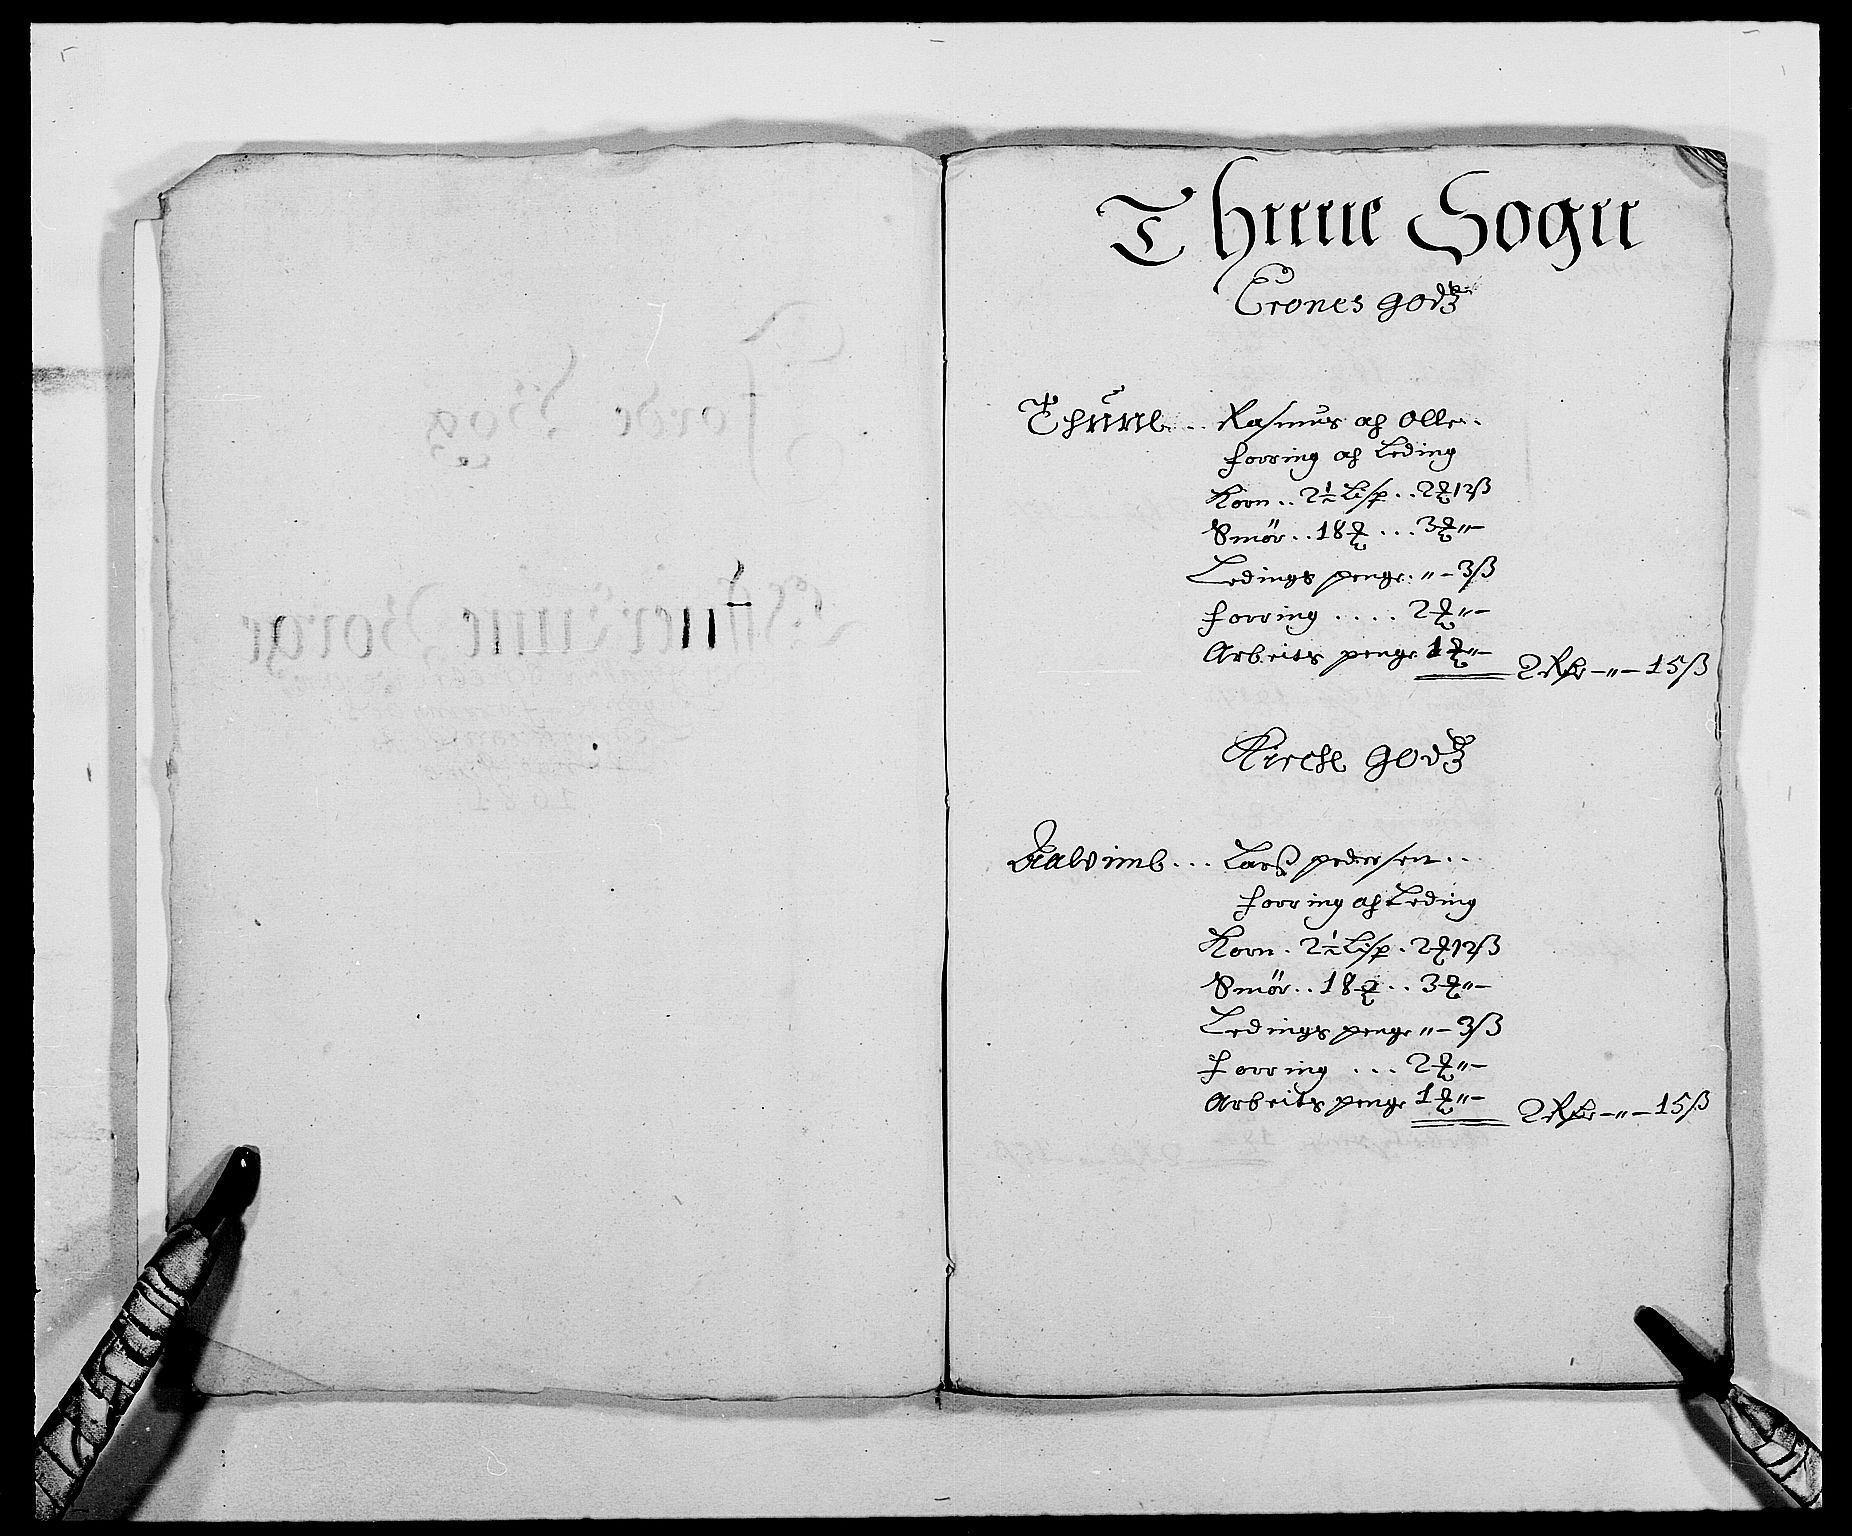 Thune Sogn
Crones godtz
Thune .. Rasmus af Olle..
forring af Leding
Korn .. 2½ Lisp .. 2 ꝳ 12 ß
Smör .. 18 ꝳ ... 3 ꝳ „ –
Ledings penge . „ – 3 ß
forring .... 2 ꝳ „ –
Arbeits penge 1 ꝳ „ – 2 Rdr – „ – 15 ß
Kircke godtz
Larß pedersen ..
forring af Leding
Korn . 2½ Lisp . 2 ꝳ 12 ß
Smör .. 18 ꝳ .. 3 ꝳ „ –
Ledings penge „ – 3 ß
forring ... 2 ꝳ „ –
Arbeits penge 1 ꝳ „ – 2 Rdr – „ – 15 ß